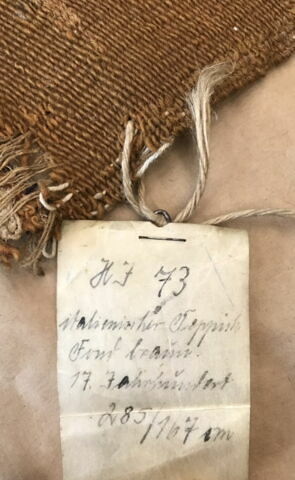 HJ 73
italienischer Teppich
Fond braun.
17. Jahrhundert
285/167 cm